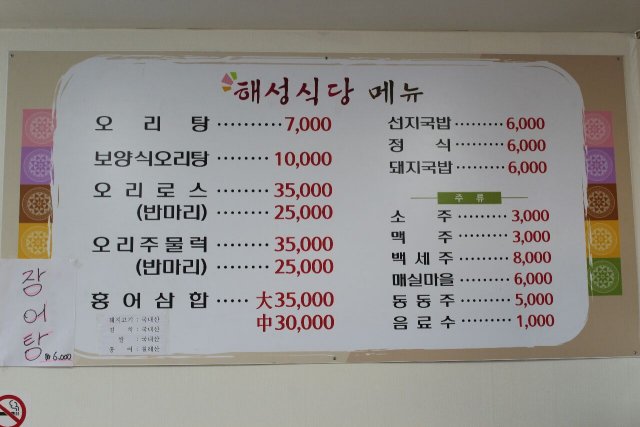 해성식당 메뉴
오리탕 ·········· 7,000
보양식오리탕 ········ 10,000
오리로스 ········ 35,000
(반마리) ········ 25,000
오리주물럭 ········ 35,000
(반마리) ········ 25,000
홍어삼합 ····· 大35,000
中30,000
돼지고기 : 국내산
김치 : 국내산
쌀 : 국내산
선지국밥 ········ 6,000
정식 ········ 6,000
돼지국밥 ········ 6,000
주류
소주 ········· 3,000
맥주 ········· 3,000
백세주 ········· 8,000
매실마을 ········ 6,000
동동주 ········ 5,000
음료수 ········ 1,000
장어탕
₩6,000